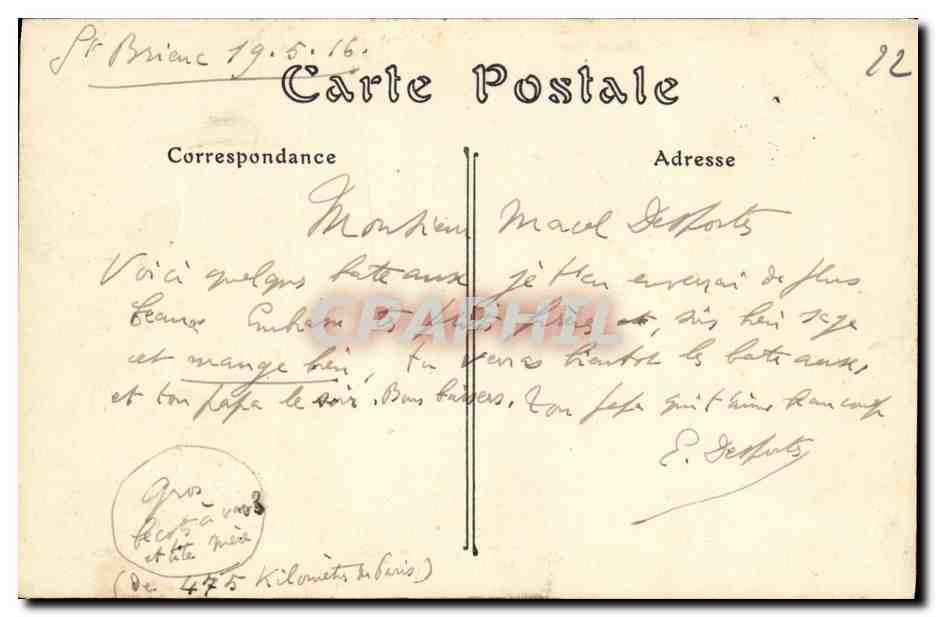 St Brieuc 19.5.16.
22
Carte Postale
Correspondance
Adresse
Monsieur Macel Desportes
Voici quelques bateaux je t'en enverrai de plus
beaux Embrasse tes petits frères et, sois bien sage
et mange bien, tu verras bientot les bateaux,
et ton papa le soir. Bons baisers. Ton papa qui t'aime beaucoup
E. Desportes
gros
becots à vous 3
et tite mère
(De 475 Kilomètres de Paris)
CPAPHIL